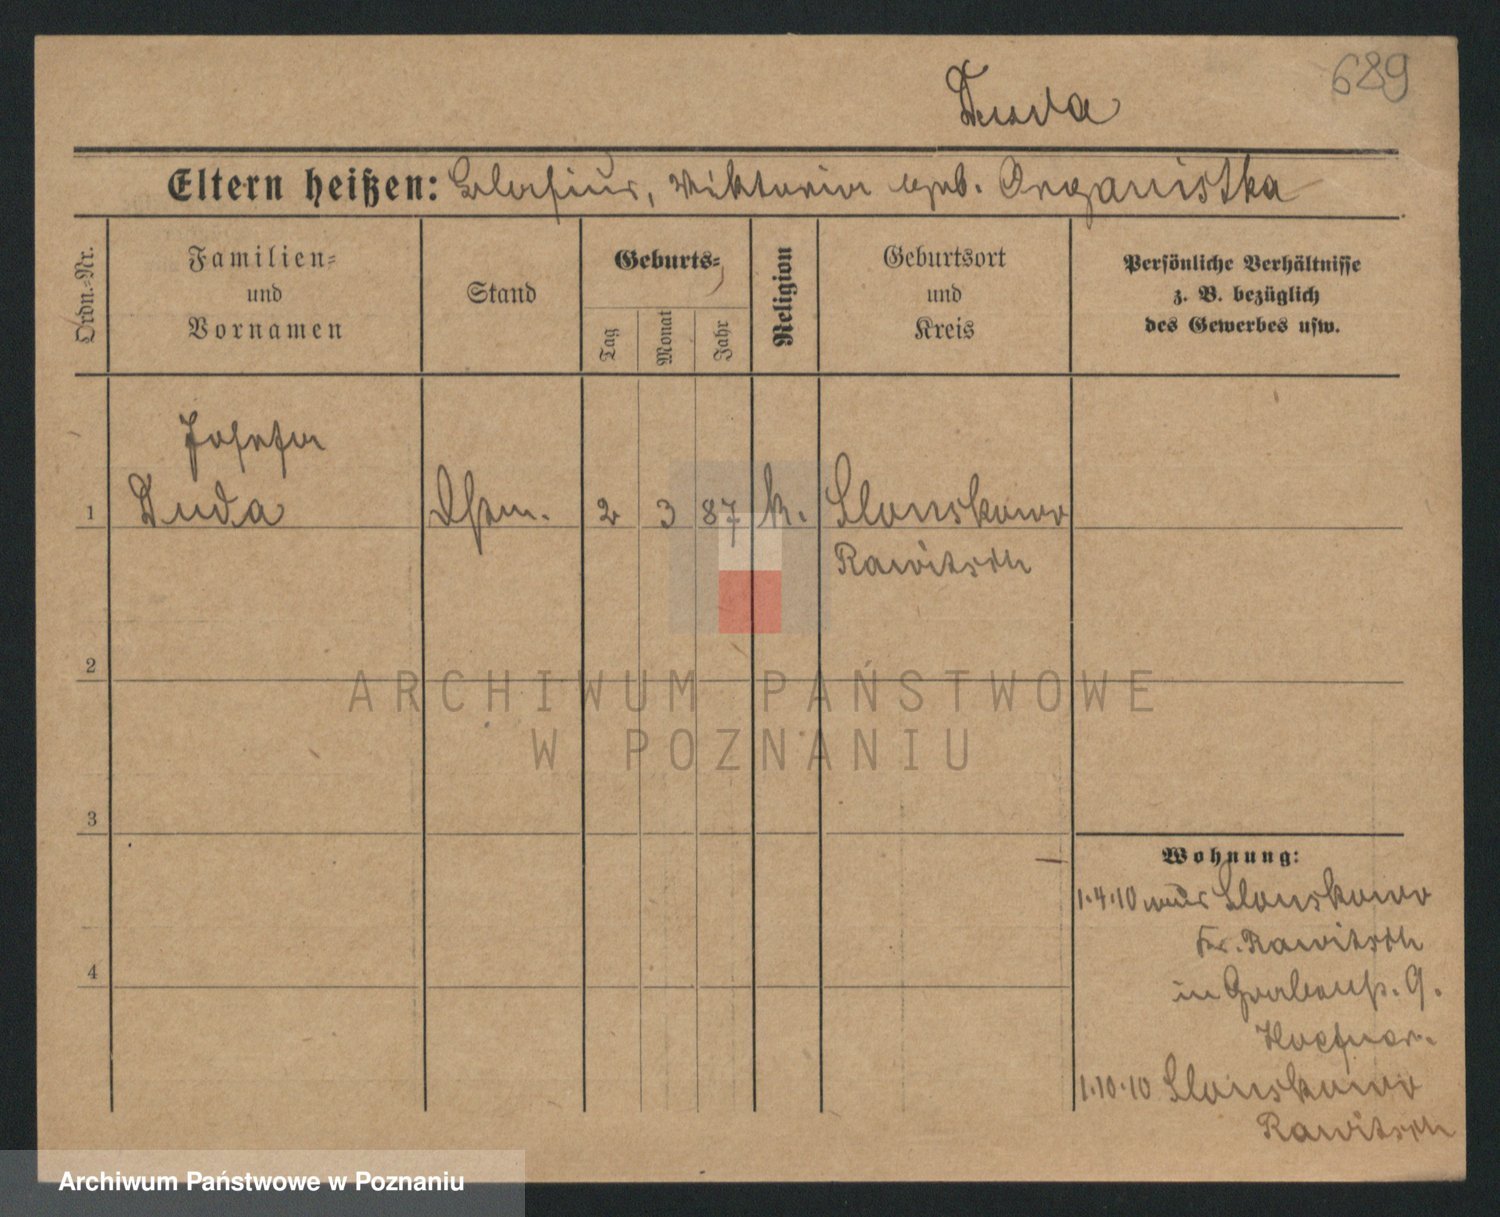 689
Duda
Eltern heißen: Blasius, Viktoria geb. Organistka
Ordn.-Nr.
Familien-
und
Vornamen
Stand
Geburts-
Tag
Monat
Jahr
Religion
Geburtsort
und
Kreis
Persönliche Verhältnisse
z. B. bezüglich
des Gewerbes usw.
Josefa
1 Duda 2 3 87 k. Slonskowo
Rawitsch
2
3
4
Wohnung:
1.4.10 aus Slonskowo
Kr. Rawitsch
in Grabenstr. 9.
1.10.10 Slonskowo
Rawitsch
ARCHIWUM PAŃSTWOWE
W POZNANIU
Archiwum Państwowe w Poznaniu